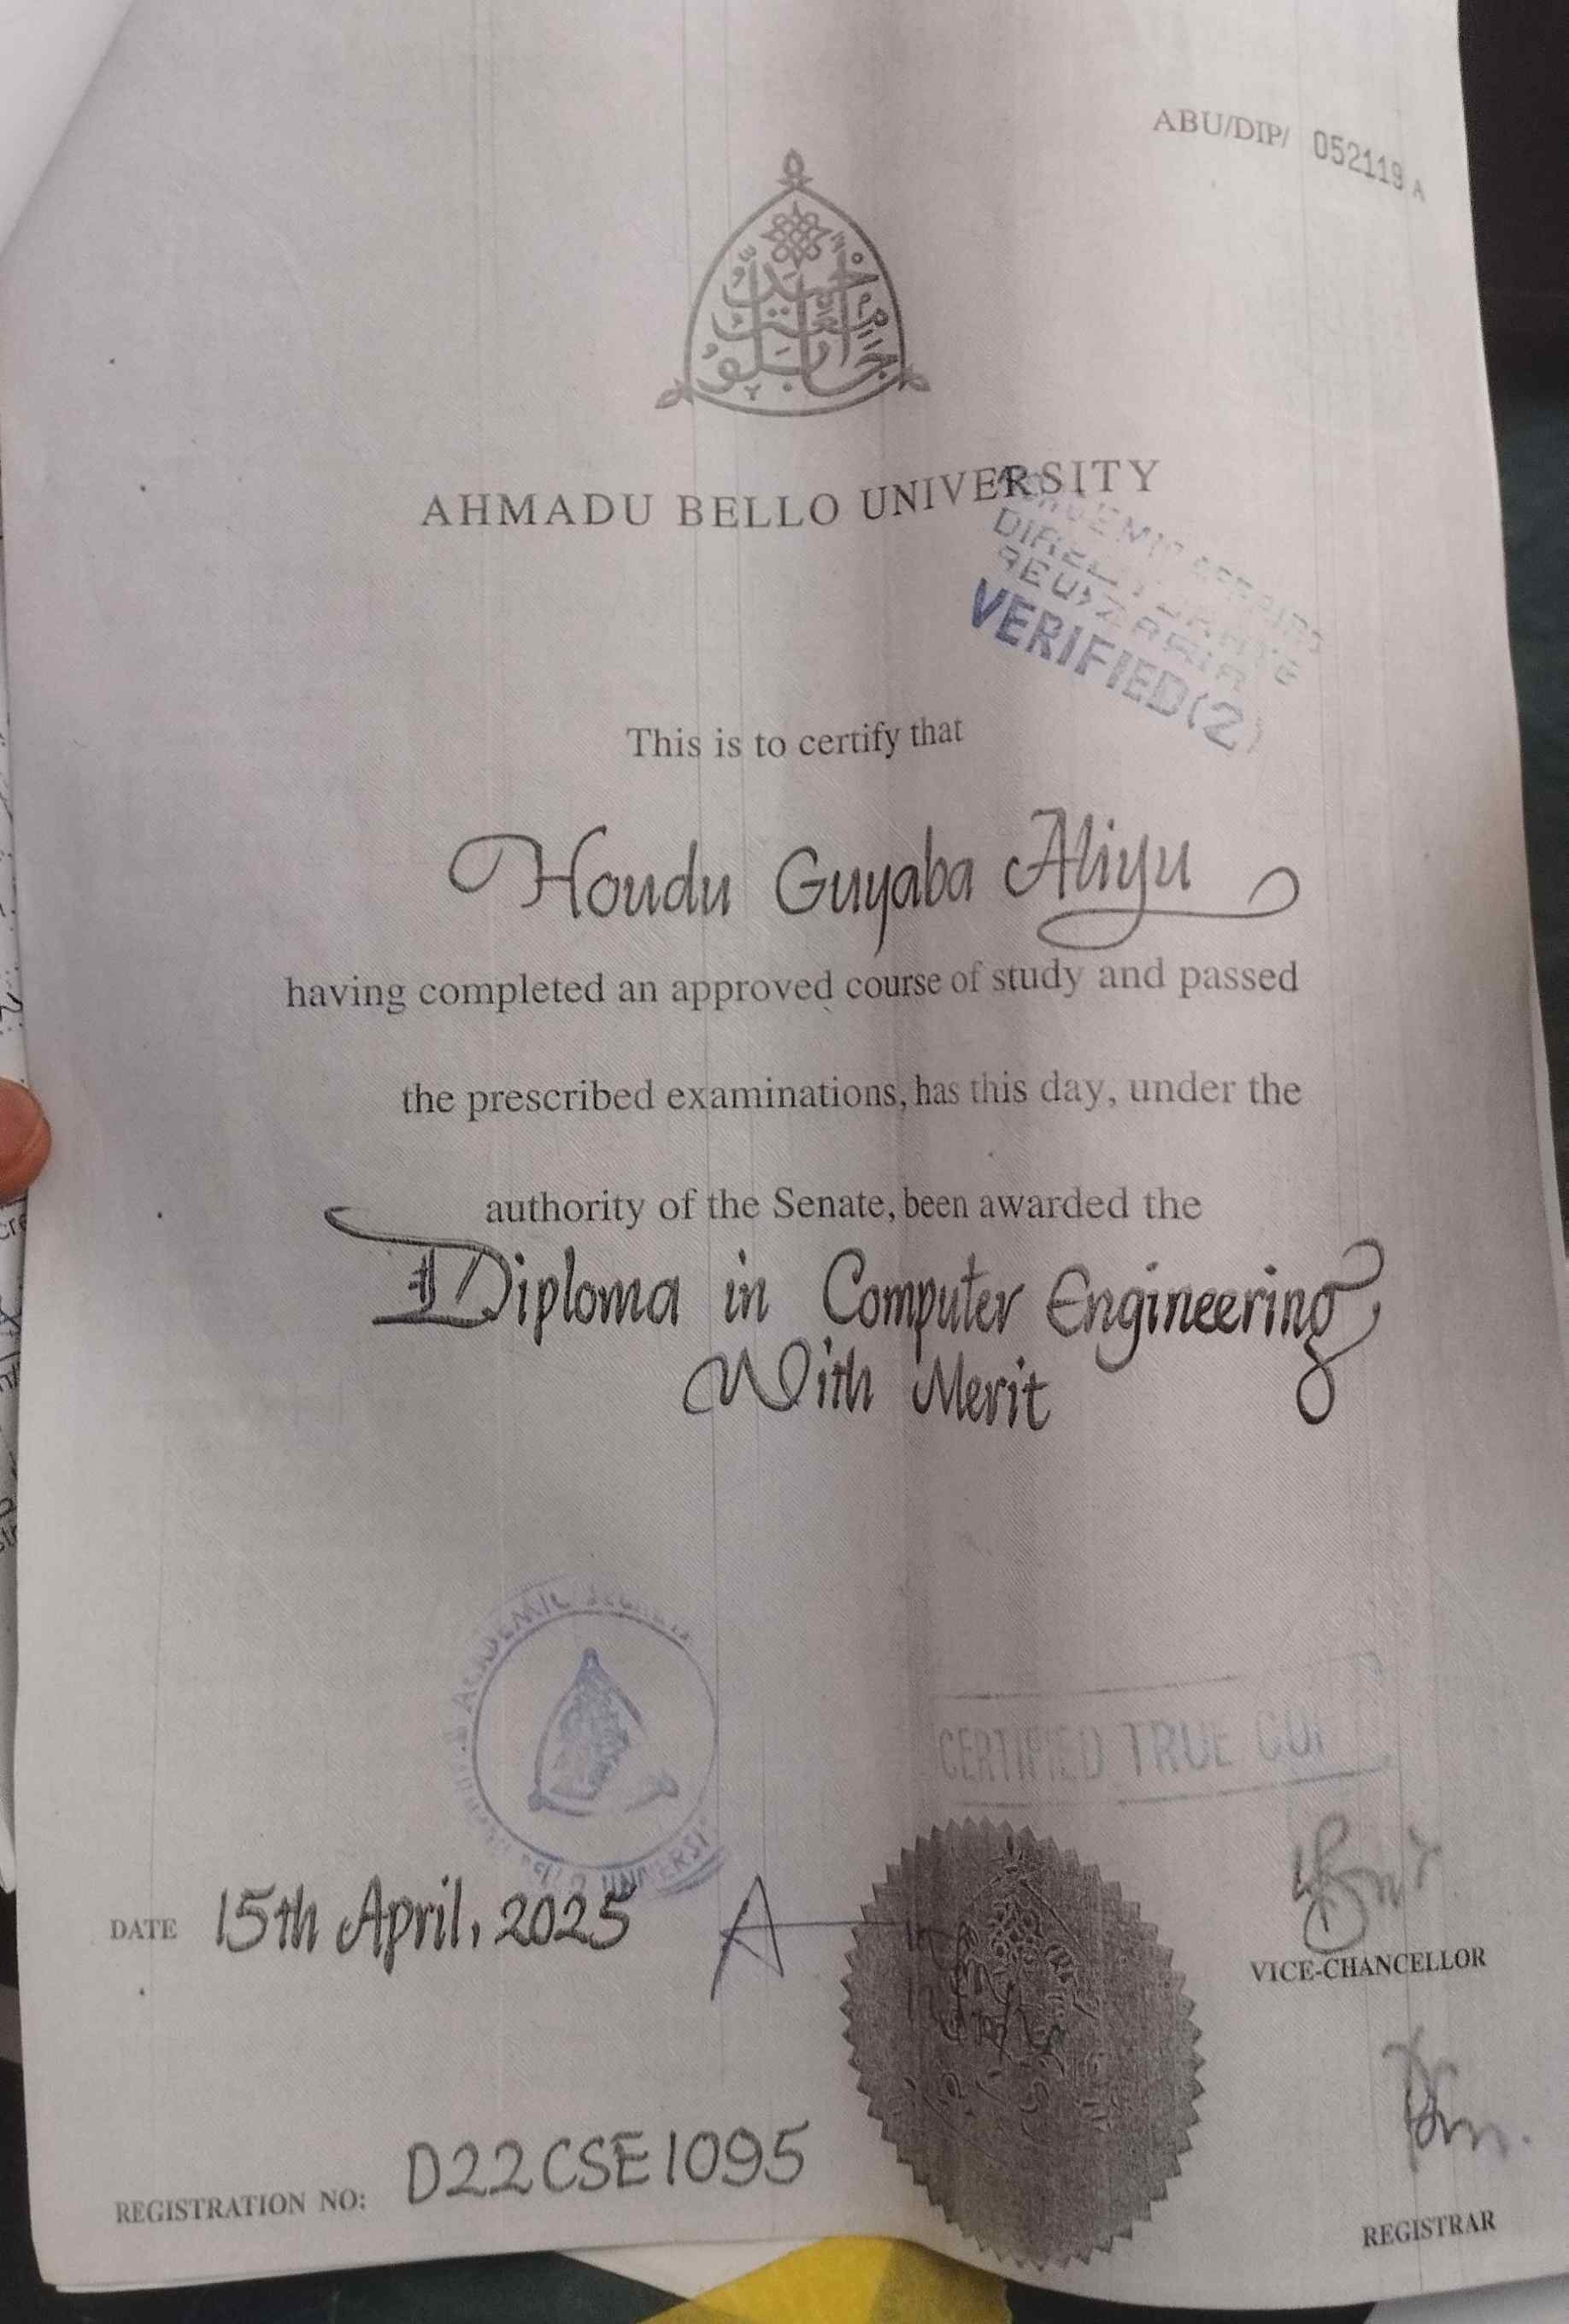 ABU/DIP/ 052119 A
جامعة
أحمد
بللو
AHMADU BELLO UNIVERSITY
ACADEMIC AFFAIRS
DIRECTORATE
ABU ZARIA
VERIFIED(2)
This is to certify that
Houdu Guyaba Aliyu
having completed an approved course of study and passed
the prescribed examinations, has this day, under the
authority of the Senate, been awarded the
Diploma in Computer Engineering
With Merit
ACADEMIC
CERTIFIED TRUE
DATE 15th April, 2025
VICE-CHANCELLOR
REGISTRATION NO: D22CSE1095
REGISTRAR